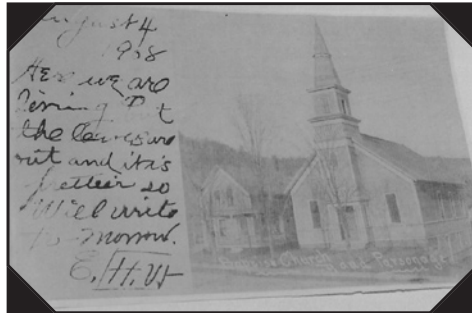 August 4
1908
Here we are
living but
the leaves are
out and it is
prettier so
Will write
to-morrow.
E. H. W
Church
and Parsonage